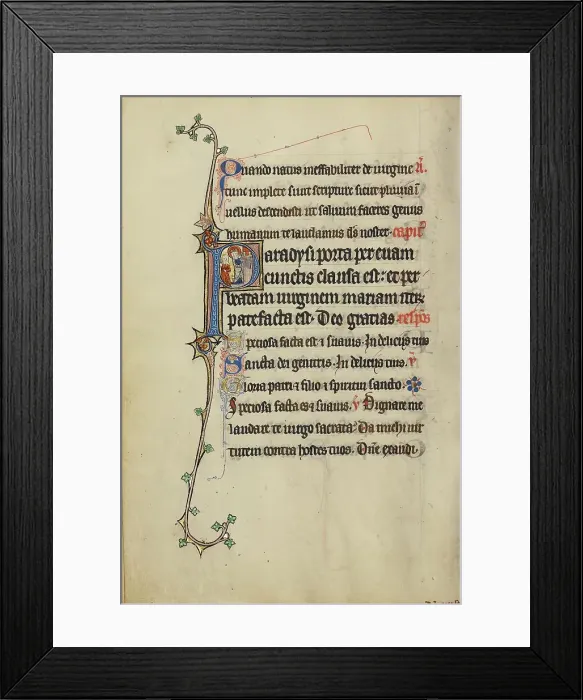 Quando natus ineffabiliter de uirgine a.
tunc implete sunt scripture sicut pluuia ī
uellus descendisti ut saluum faceres genus
humanum te laudamus ds noster. capitl
Paradysi porta per euam
cunctis clausa est: et per
beatam uirginem mariam iterū
patefacta est. Deo gratias. respōs
Speciosa facta es ⁊ suauis. In deliciis tuis
Sancta dei genitrix. In deliciis tuis. v
Gloria patri ⁊ filio ⁊ spiritui sancto.
Speciosa facta es ⁊ suauis. v Dignare me
laudare te uirgo sacrata. Da michi uir
tutem contra hostes tuos. Dn̄e exaudi